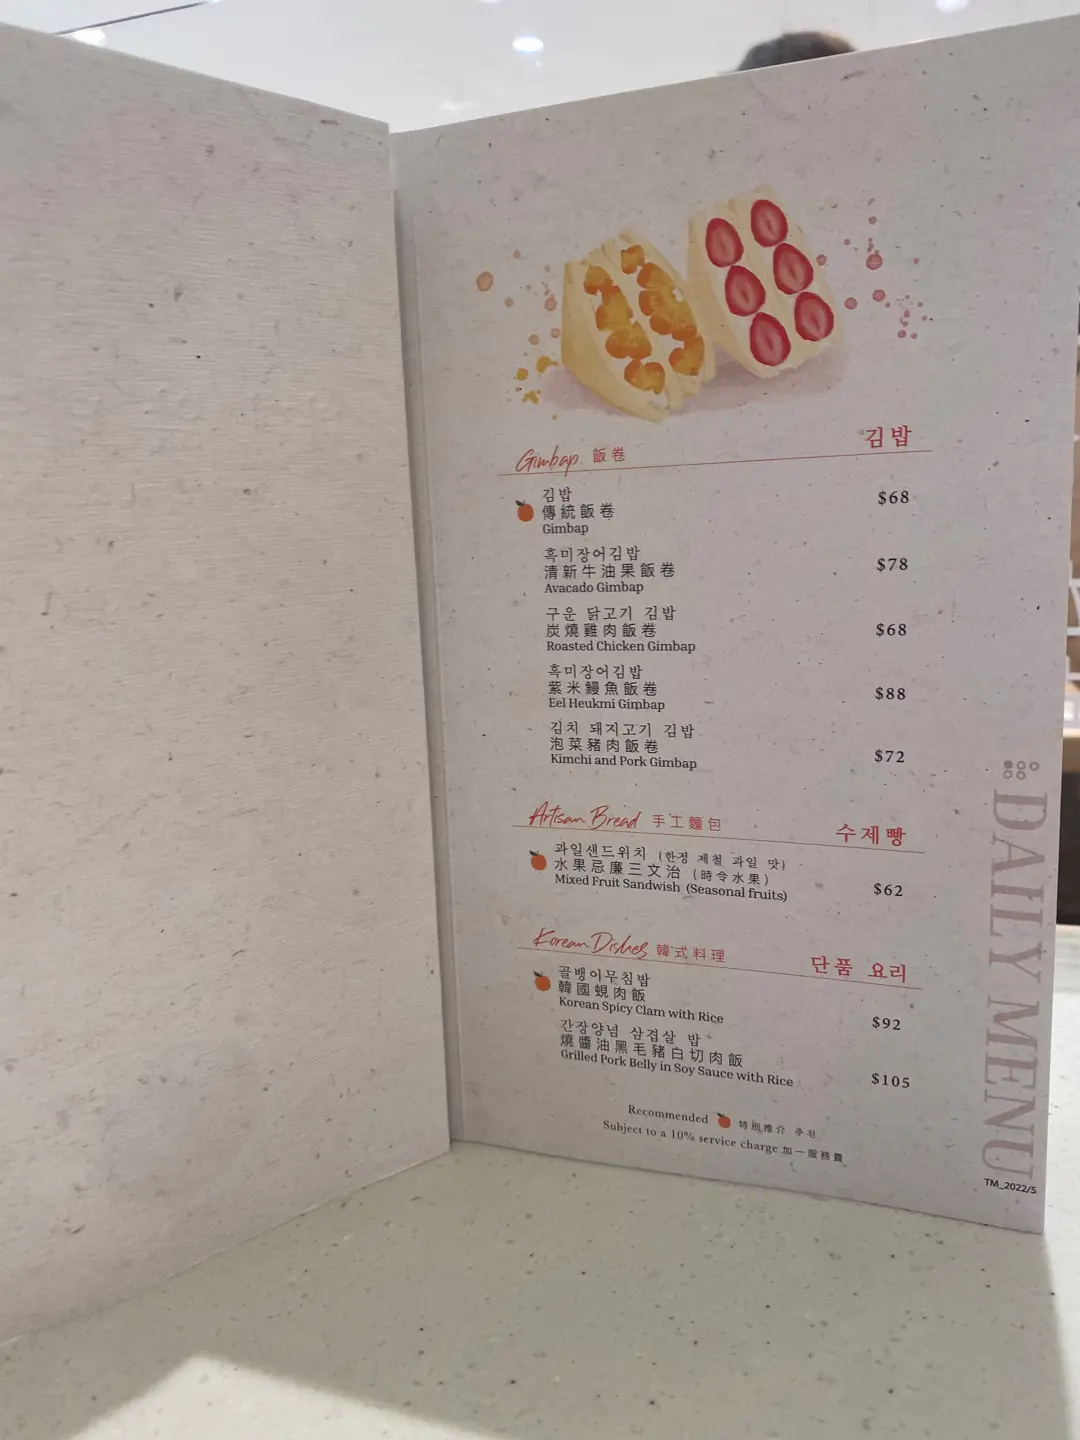 Gimbap 飯卷 김밥
김밥
傳統飯卷
Gimbap
$68
흑미장어김밥
清新牛油果飯卷
Avacado Gimbap
$78
구운 닭고기 김밥
炭燒雞肉飯卷
Roasted Chicken Gimbap
$68
흑미장어김밥
紫米鰻魚飯卷
Eel Heukmi Gimbap
$88
김치 돼지고기 김밥
泡菜豬肉飯卷
Kimchi and Pork Gimbap
$72
Artisan Bread 手工麵包 수제빵
과일샌드위치 (한정 제철 과일 맛)
水果忌廉三文治 (時令水果)
Mixed Fruit Sandwish (Seasonal fruits)
$62
Korean Dishes 韓式料理 단품 요리
골뱅이무침밥
韓國蜆肉飯
Korean Spicy Clam with Rice
$92
간장양념 삼겹살 밥
燒醬油黑毛豬白切肉飯
Grilled Pork Belly in Soy Sauce with Rice
$105
Recommended 特別推介 추천
Subject to a 10% service charge 加一服務費
DAILY MENU
TM_2022/5